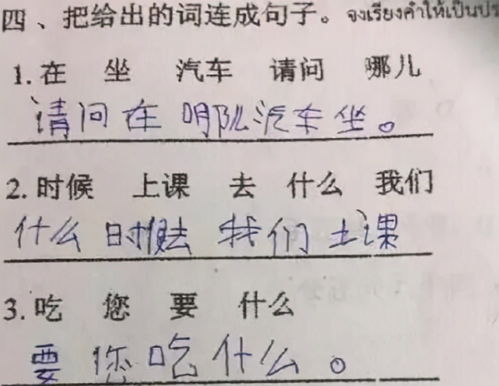 四、把给出的词连成句子。จงเรียงคำให้เป็นปร
1. 在 坐 汽车 请问 哪儿
请问在 哪儿汽车坐。
2. 时候 上课 去 什么 我们
什么 时候去 我们 上课
3. 吃 您 要 什么
要 您吃什么。